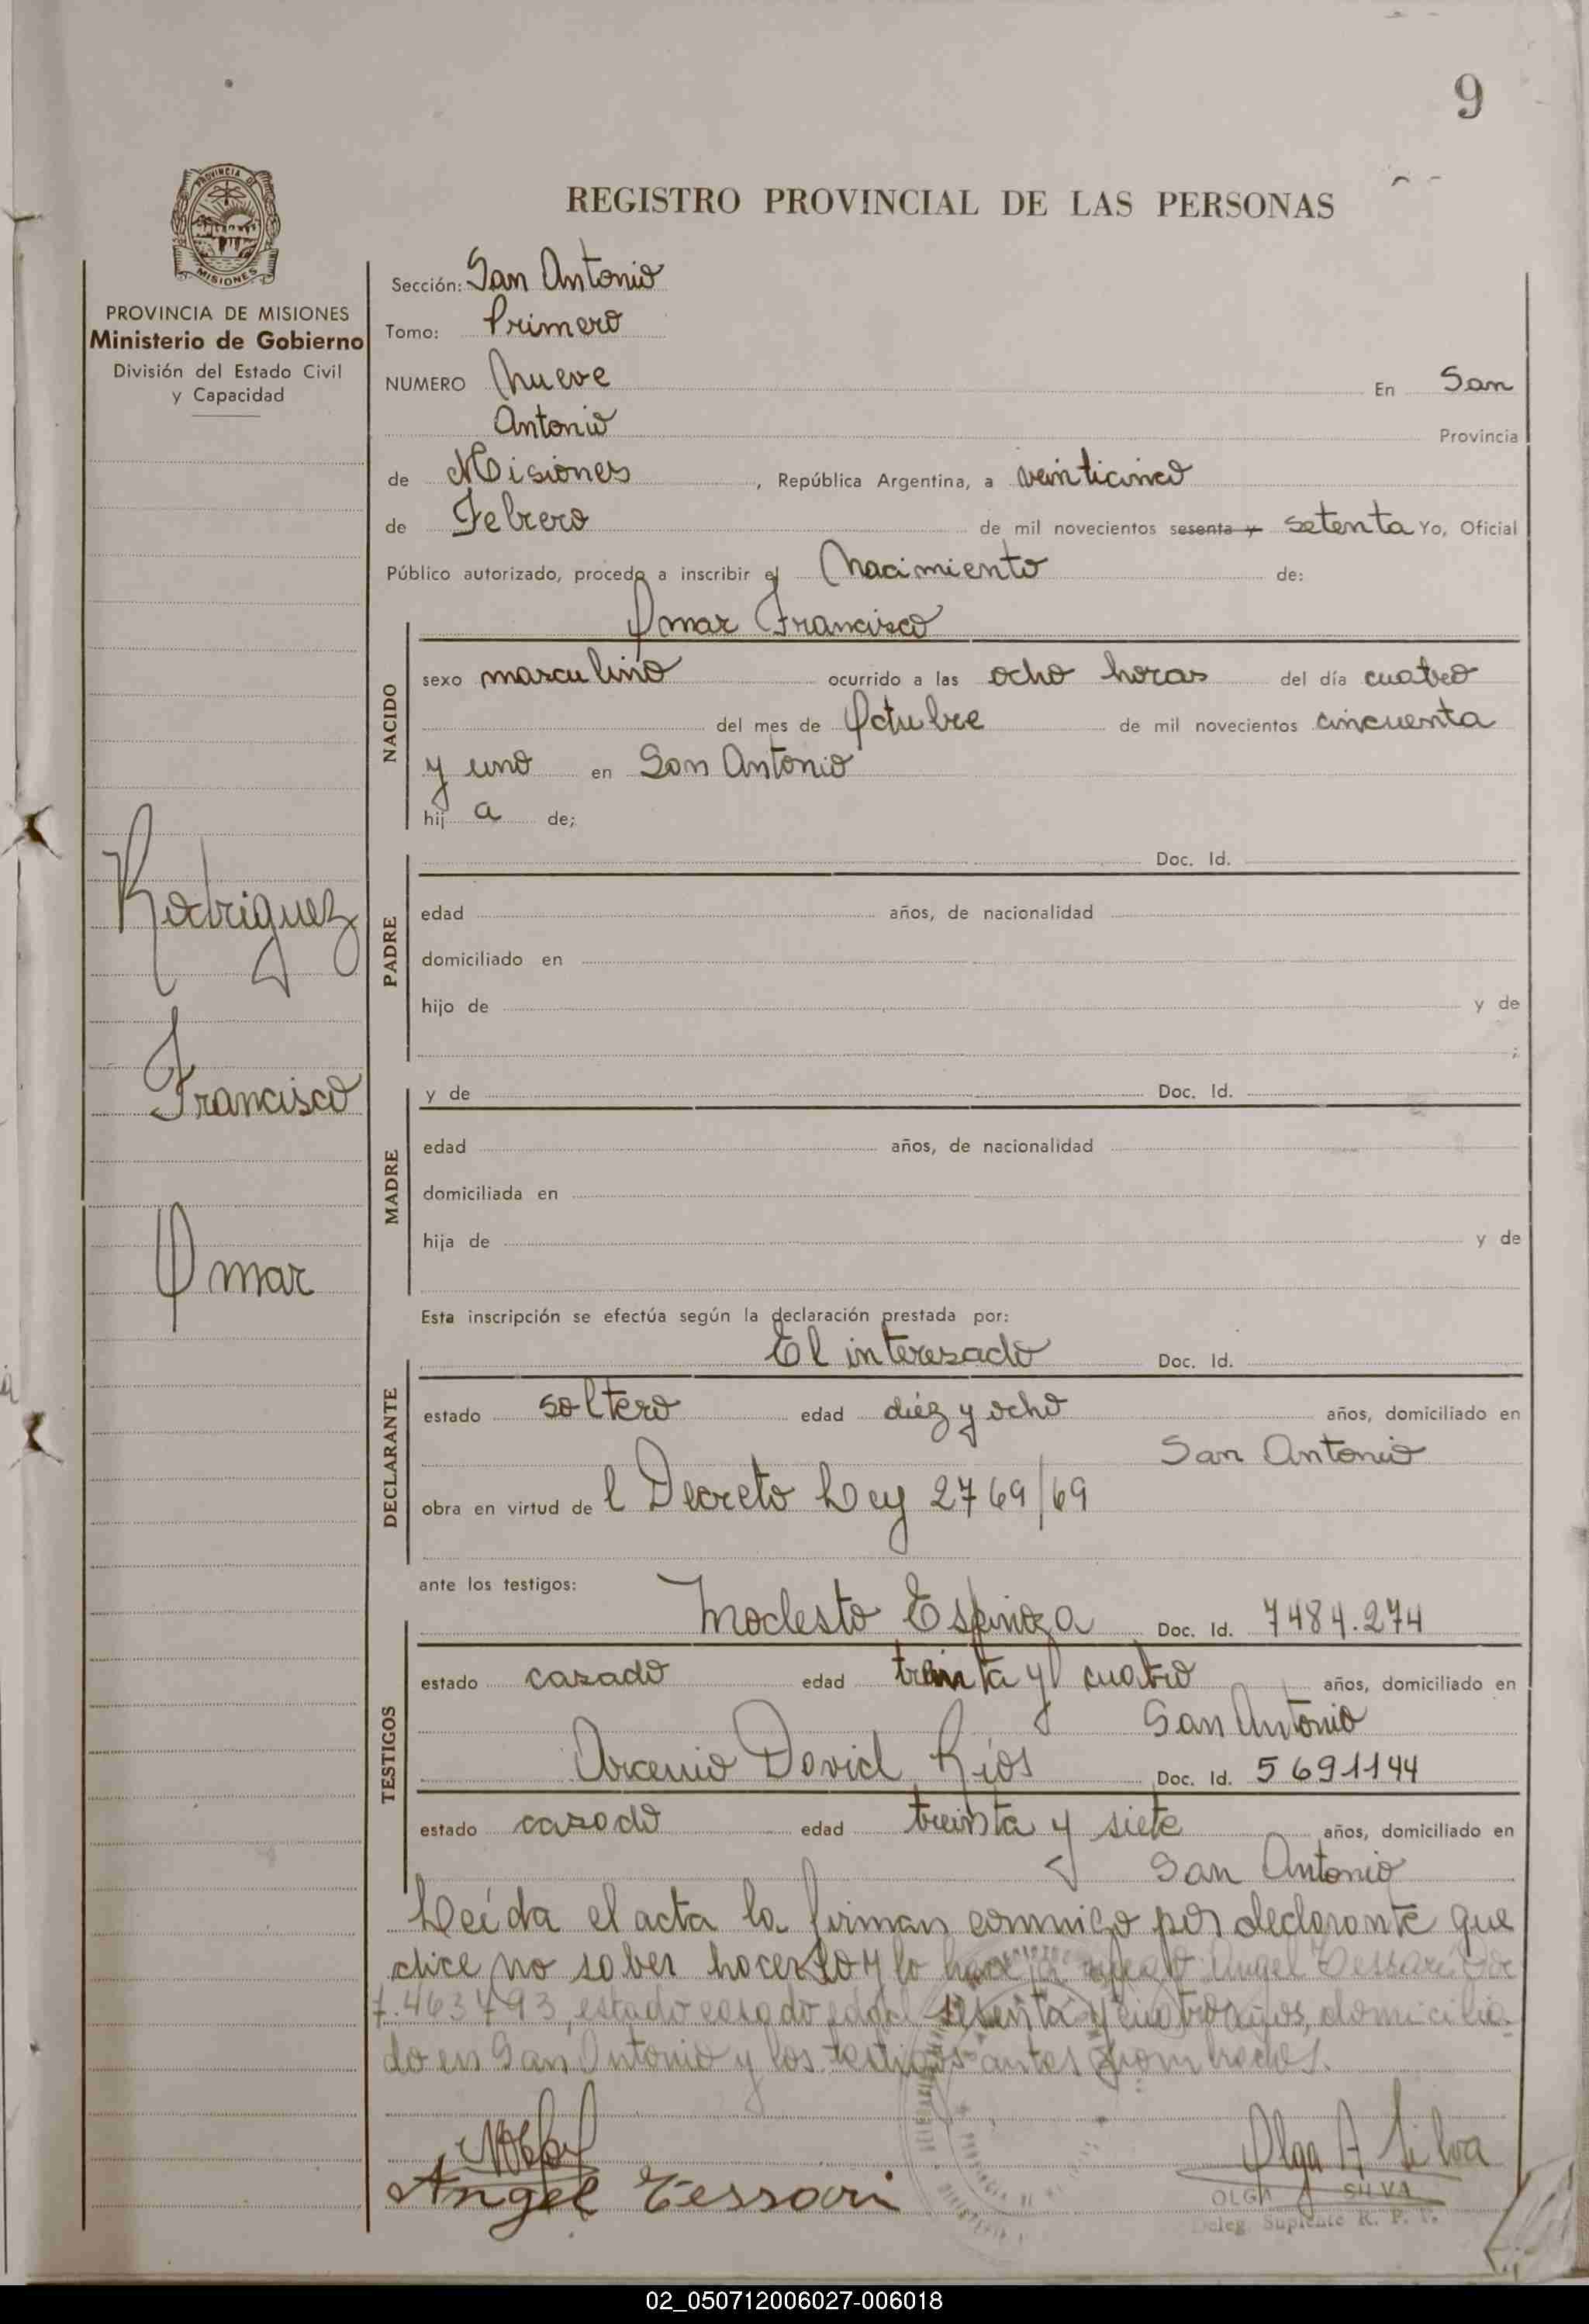 9
PROVINCIA DE
MISIONES
REGISTRO PROVINCIAL DE LAS PERSONAS
PROVINCIA DE MISIONES
Ministerio de Gobierno
División del Estado Civil
y Capacidad
Rodriguez
Francisco
Omar
Sección: San Antonio
Tomo: Primero
NUMERO Nueve En San
Antonio Provincia
de Misiones, República Argentina, a veinticinco
de Febrero de mil novecientos sesenta y setenta Yo, Oficial
Público autorizado, procedo a inscribir el Nacimiento de:
NACIDO
Omar Francisco
sexo masculino ocurrido a las ocho horas del día cuatro
del mes de Octubre de mil novecientos cincuenta
y uno en San Antonio
hij a de;
PADRE
Doc. Id.
edad años, de nacionalidad
domiciliado en
hijo de y de
;
MADRE
y de Doc. Id.
edad años, de nacionalidad
domiciliada en
hija de y de
Esta inscripción se efectúa según la declaración prestada por:
DECLARANTE
El interesado Doc. Id.
estado soltero edad diéz y ocho años, domiciliado en
San Antonio
obra en virtud de l Decreto Ley 2769/69
ante los testigos:
TESTIGOS
Modesto Espinoza Doc. Id. 7484.274
estado casado edad treinta y cuatro años, domiciliado en
San Antonio
Arcenio David Ríos Doc. Id. 5691144
estado casado edad treinta y siete años, domiciliado en
San Antonio
Leída el acta la firman conmigo por declarante que
dice no saber hacerlo y lo hace a ruego Angel Tessari
7.463493, estado casado edad sesenta y cuatro años, domicilia-
do en San Antonio y los testigos antes nombrados.
Angel Tessari
Olga A Silva
OLGA A SILVA
Deleg. Suplente R. P. P.
02_050712006027-006018